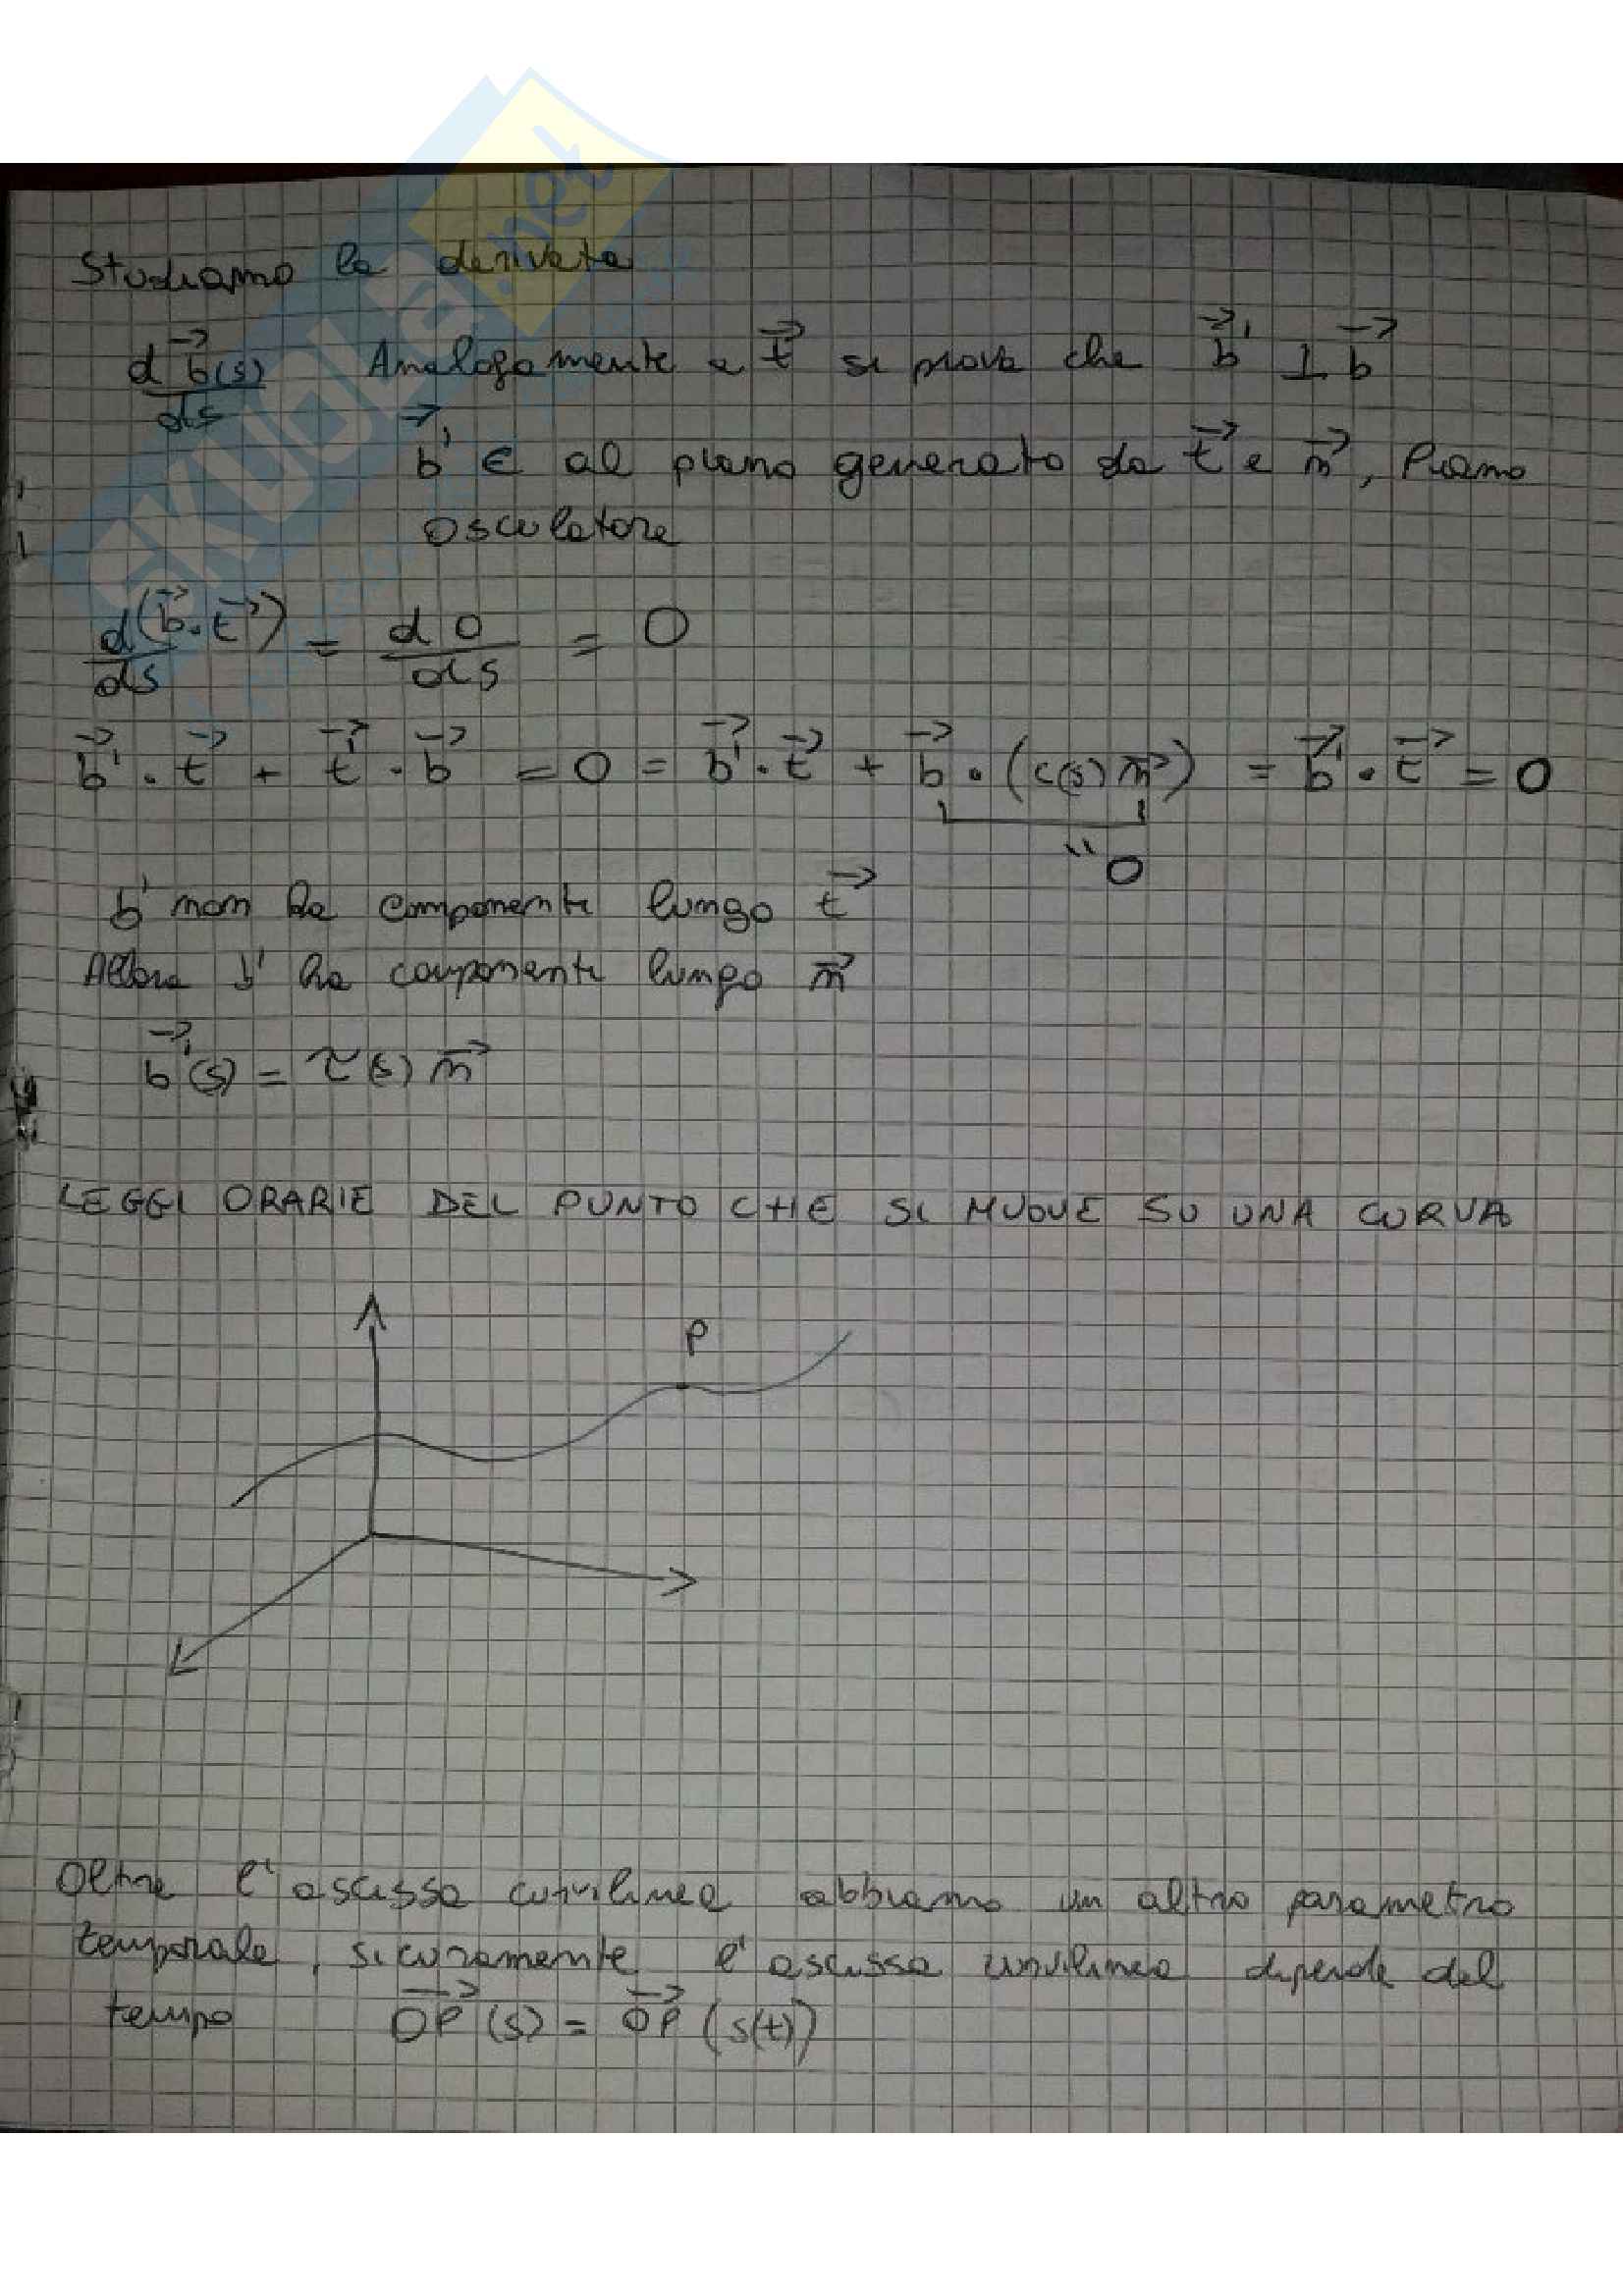 SKUOLA.net
Studiamo la derivata
d b⃗(s)/ds Analogamente a t⃗ si prova che b⃗' ⊥ b⃗
b⃗' ∈ al piano generato da t⃗ e n⃗, Piano
osculatore
d(b⃗·t⃗)/ds = d0/ds = 0
b⃗'·t⃗ + t⃗'·b⃗ = 0 = b⃗'·t⃗ + b⃗·(c(s) n⃗) = b⃗'·t⃗ = 0
" 0
b' non ha componente lungo t⃗
Allora b' ha componente lungo n⃗
b⃗'(s) = τ(s) n⃗
LEGGI ORARIE DEL PUNTO CHE SI MUOVE SU UNA CURVA
P
Oltre l'ascissa curvilinea abbiamo un altro parametro
temporale, sicuramente l'ascissa curvilinea dipende dal
tempo OP⃗(s) = OP⃗(s(t))